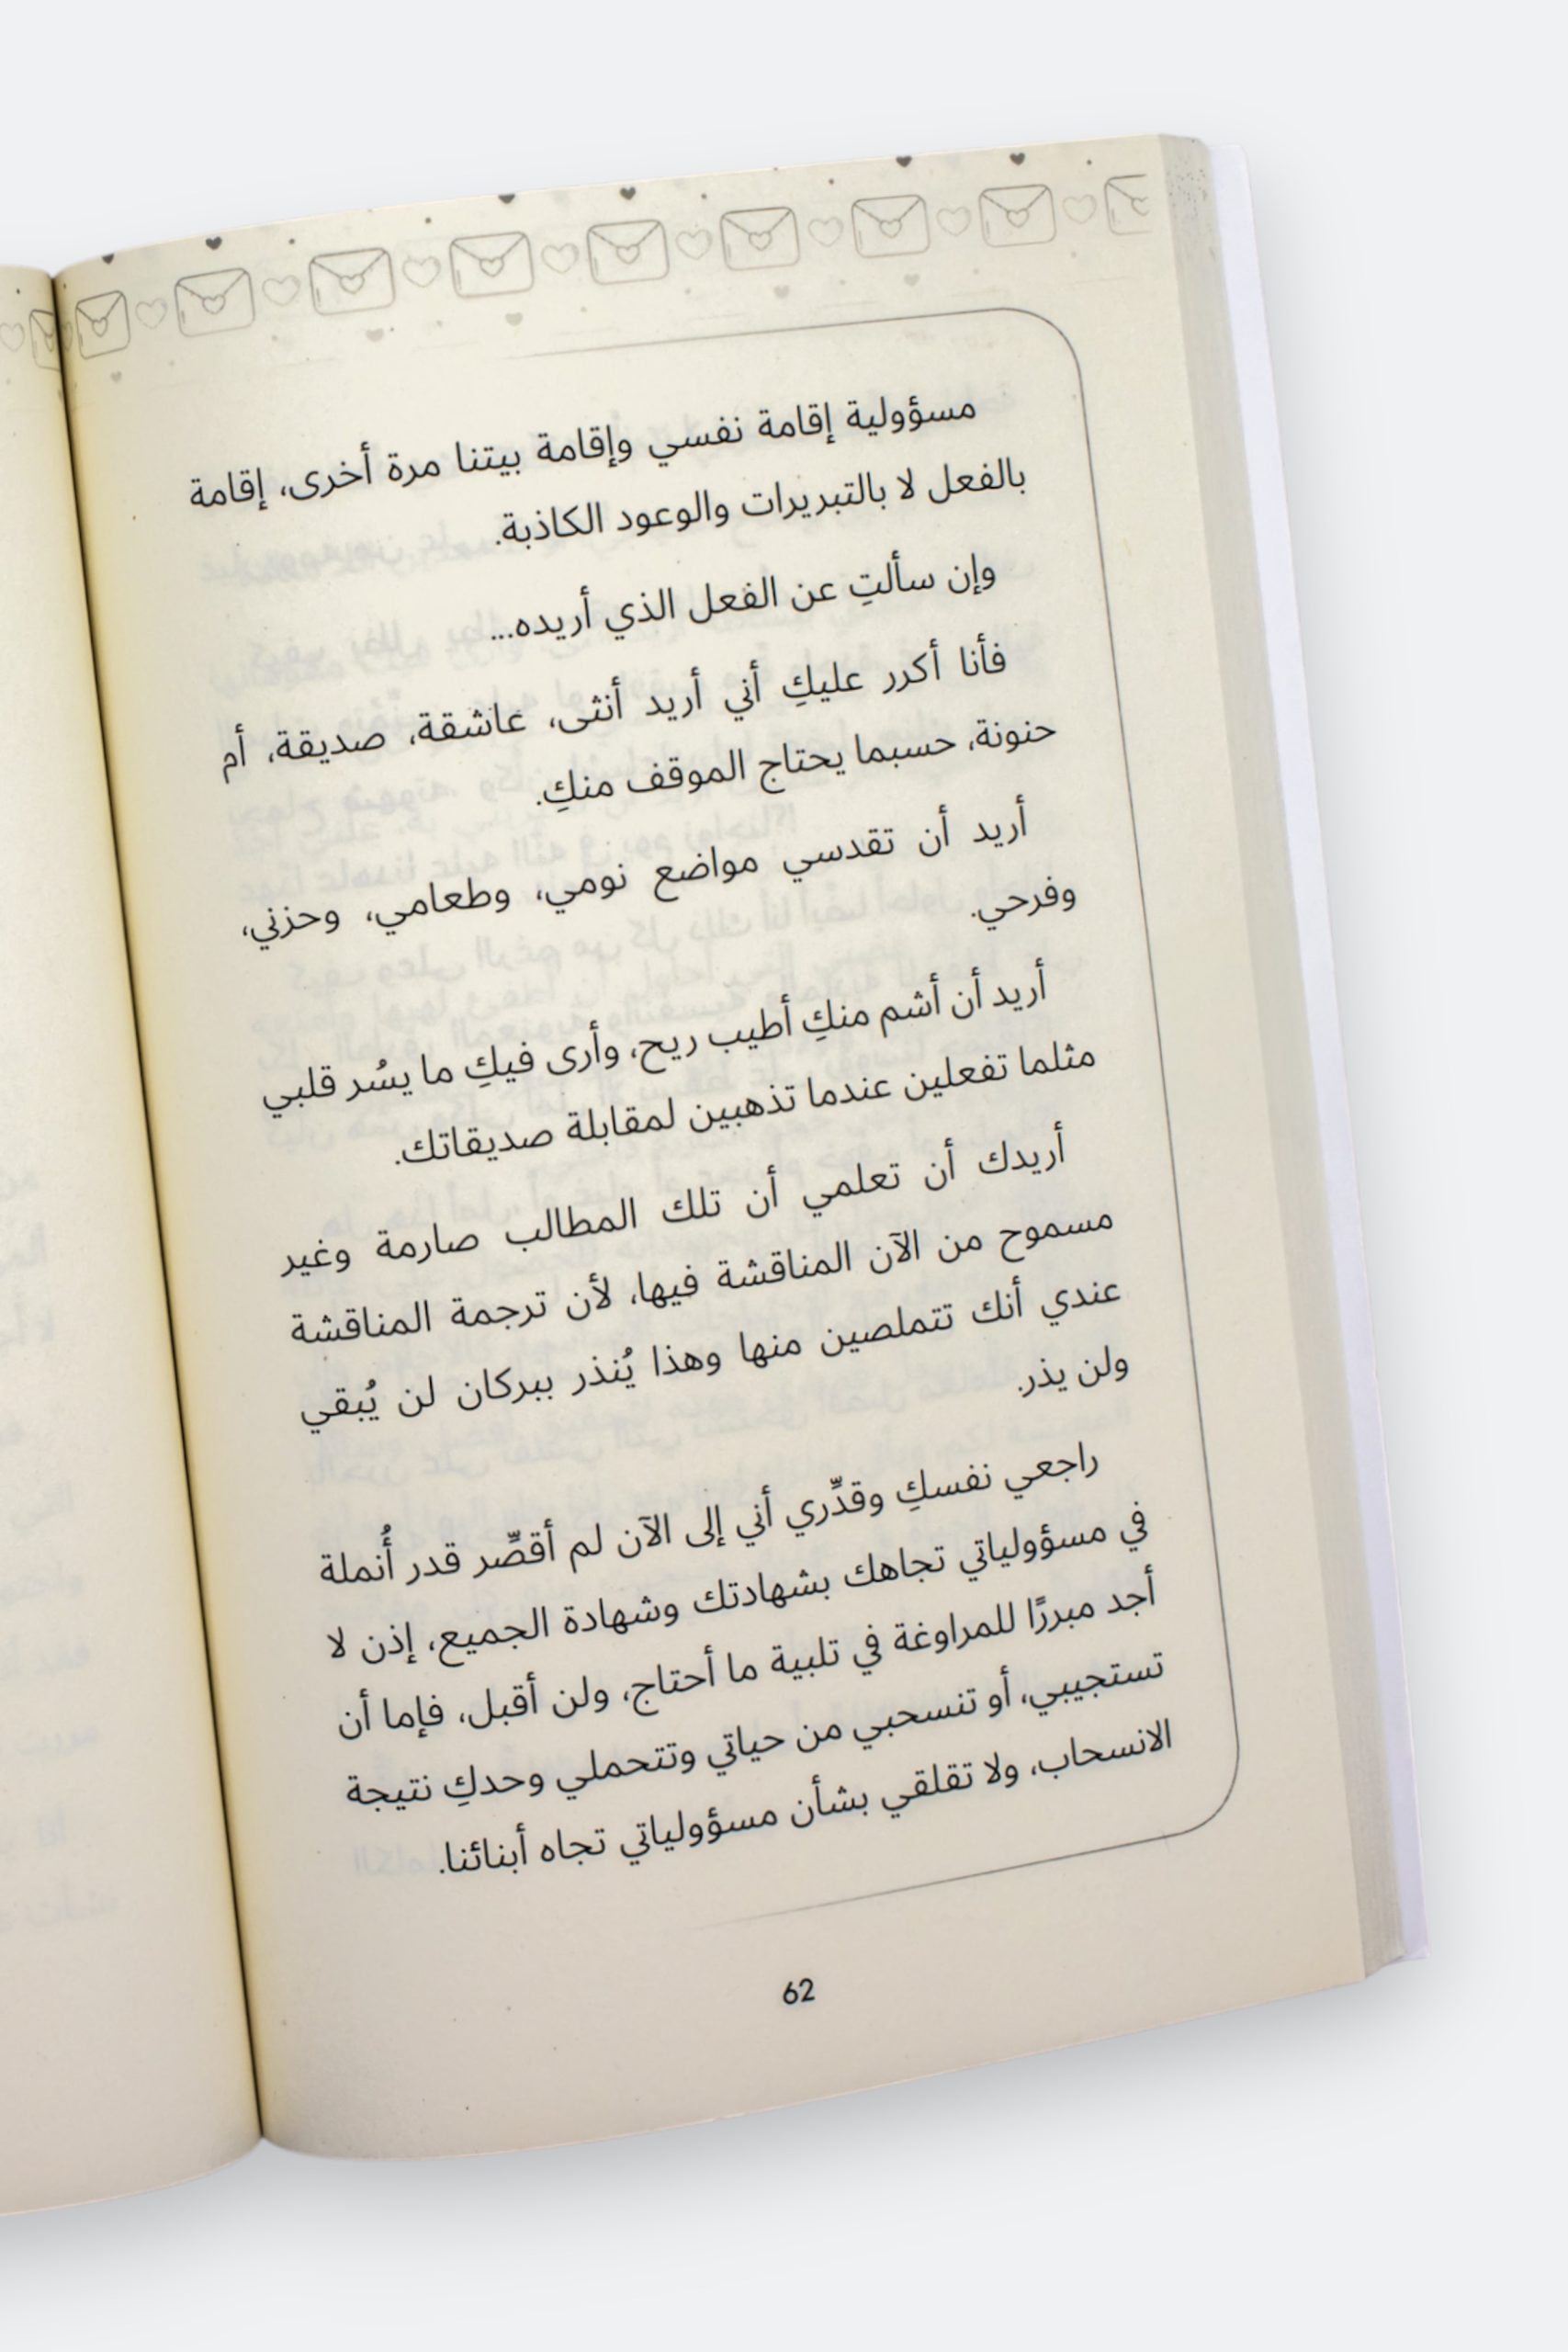 مسؤولية إقامة نفسي وإقامة بيتنا مرة أخرى، إقامة
بالفعل لا بالتبريرات والوعود الكاذبة.
وإن سألتِ عن الفعل الذي أريده...
فأنا أكرر عليكِ أني أريد أنثى، عاشقة، صديقة، أم
حنونة، حسبما يحتاج الموقف منكِ.
أريد أن تقدسي مواضع نومي، وطعامي، وحزني،
وفرحي.
أريد أن أشم منكِ أطيب ريح، وأرى فيكِ ما يسُر قلبي
مثلما تفعلين عندما تذهبين لمقابلة صديقاتك.
أريدك أن تعلمي أن تلك المطالب صارمة وغير
مسموح من الآن المناقشة فيها، لأن ترجمة المناقشة
عندي أنك تتملصين منها وهذا يُنذر ببركان لن يُبقي
ولن يذر.
راجعي نفسكِ وقدِّري أني إلى الآن لم أقصِّر قدر أُنملة
في مسؤولياتي تجاهك بشهادتك وشهادة الجميع، إذن لا
أجد مبررًا للمراوغة في تلبية ما أحتاج، ولن أقبل، فإما أن
تستجيبي، أو تنسحبي من حياتي وتتحملي وحدكِ نتيجة
الانسحاب، ولا تقلقي بشأن مسؤولياتي تجاه أبنائنا.
62